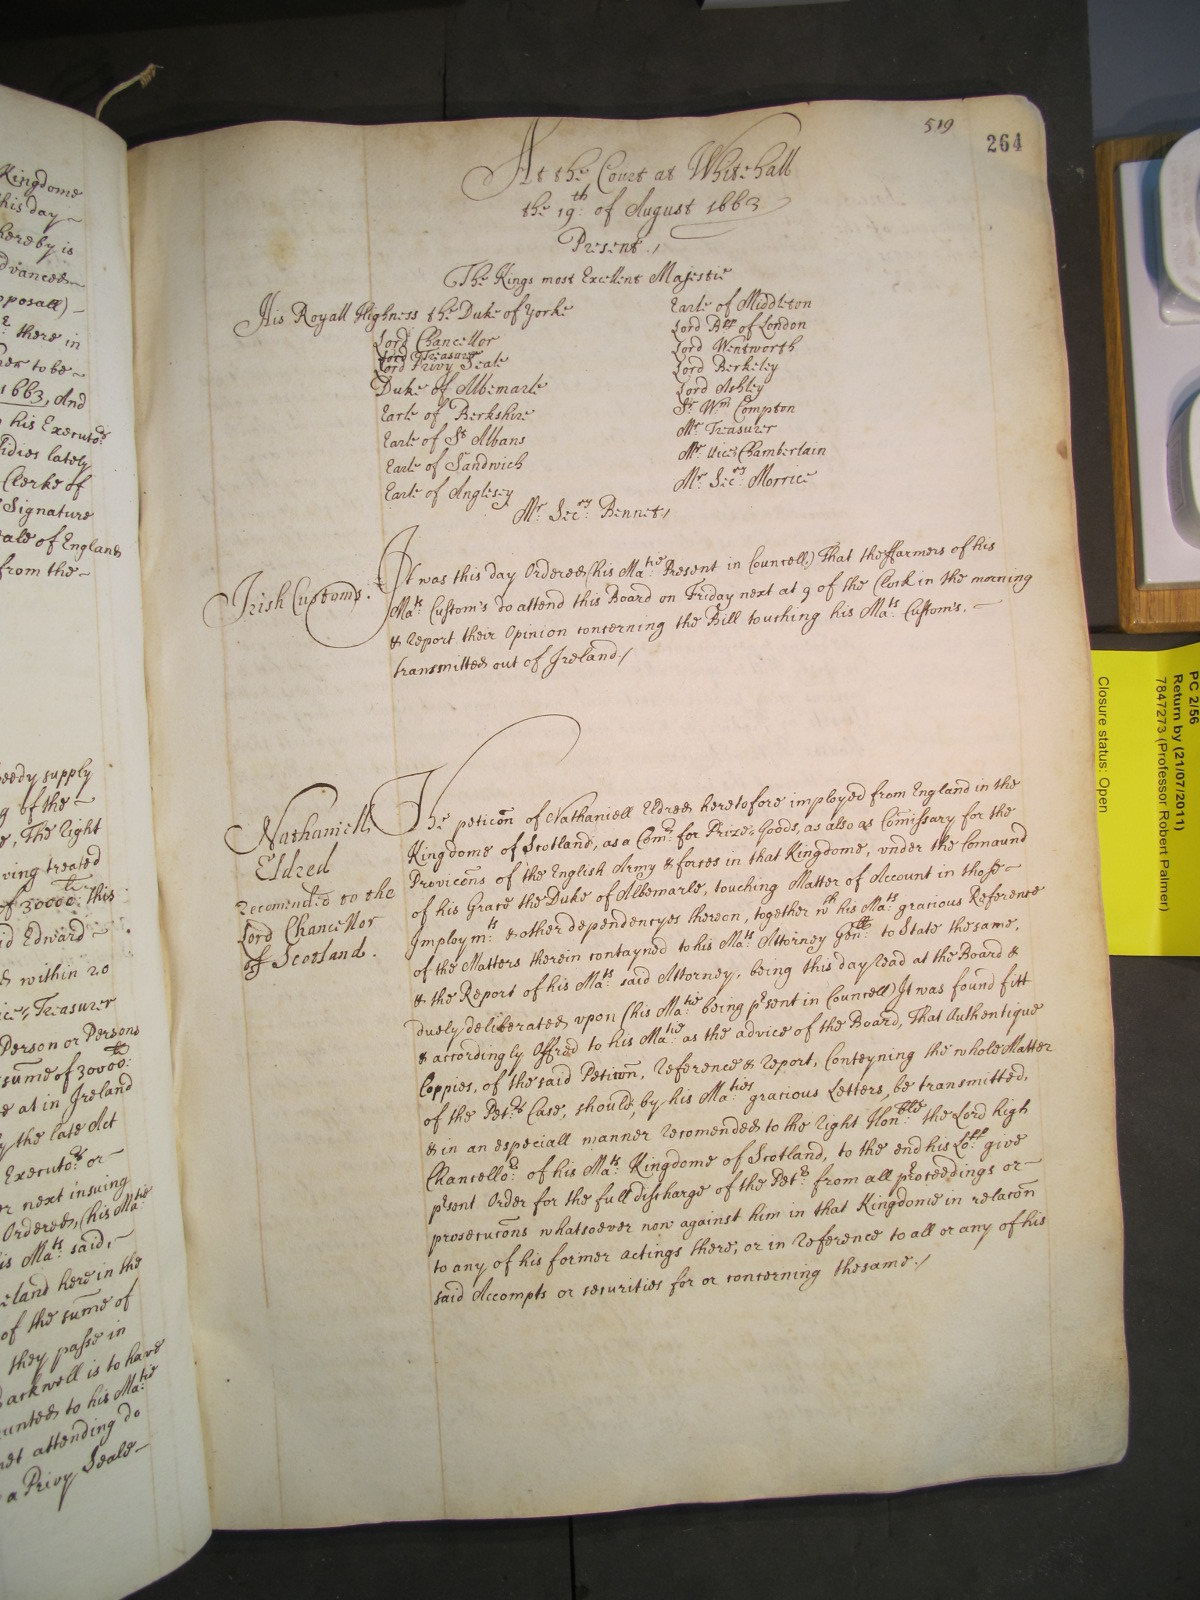 Kingdome
this day ~
hereby is
dvanced
pposall) -
there in
to be -
1663, And
his Executo.rs
lately
Clerke of
Signature
eale of England
from the -
eedy supply
g of the -
e, The right
ving treated
of 30000.li this
id Edward -
within 20
Treasurer
Person or Persons
sume of 30000.li
e at in Ireland
y the late Act
Executo.rs or -
r next insuing
Ordered, (his Ma.tie
is Ma.ts said, -
eland here in the
of the sume of
they passe in
ackwell is to have
unted to his Ma.tie
attending do
a Privy Seale -
519
264
At the Court at Whitehall
the 19.th of August 1663
Present /
The Kings most Excellent Majestie
His Royall Highness the Duke of Yorke
Lord Chancellor
Lord Treasurer
Lord Privy Seale
Duke of Albemarle
Earle of Berkshire
Earle of St Albans
Earle of Sandwich
Earle of Anglesey
Earle of Middleton
Lord Bpp of London
Lord Wentworth
Lord Berkeley
Lord Ashley
Sr Wm Compton
Mr Treasurer
Mr Vice Chamberlain
Mr Sec.ry Morrice
Mr Sec.ry Bennet /
Irish Customs.
It was this day Ordered (his Ma.tie Present in Councell) That the ffarmers of his
Ma.ts Custom's do attend this Board on Friday next at 9 of the Clock in the morning
& Report their Opinion concerning the Bill touching his Ma.ts Custom's, -
transmitted out of Ireland /
Nathaniell
Eldred
recomended to the
Lord Chancellor
of Scotland.
The peticõn of Nathaniell Eldred heretofore imployed from England in the
Kingdome of Scotland, as a Com.r for Prize-Goods, as also as Comissary for the
Provicõns of the English Army & forces in that Kingdome, vnder the Comaund
of his Grace the Duke of Albemarle, touching Matter of Account in those -
Imploym.ts & other dependencyes thereon, together wth his Ma.ts gracious Reference
of the Matters therein contayned to his Ma.ts Attorney Gen.ll to State the same,
& the Report of his Ma.ts said Attorney, being this day read at the Board &
duely deliberated upon (his Ma.tie being p'sent in Councell) It was found fitt
& accordingly Offred to his Ma.tie as the advice of the Board, That Authentique
Coppies, of the said Peticõn, Reference & Report, Conteyning the whole Matter
of the Pet.rs Case, should, by his Ma.ties gracious Letters, be transmitted,
& in an especiall manner recomended to the right Hon.ble the Lord high
Chancello.r of his Ma.ts Kingdome of Scotland, to the end his Lo.pp give
p'sent Order for the full discharge of the Pet.r from all p'ceedings or -
prosecucõns whatsoever now against him in that Kingdome in relacõn
to any of his former actings there, or in Reference to all or any of his
said Accompts or securities for or concerning the same. /
PC 2/56
Return by (21/07/2011)
7847273 (Professor Robert Palmer)
Closure status: Open